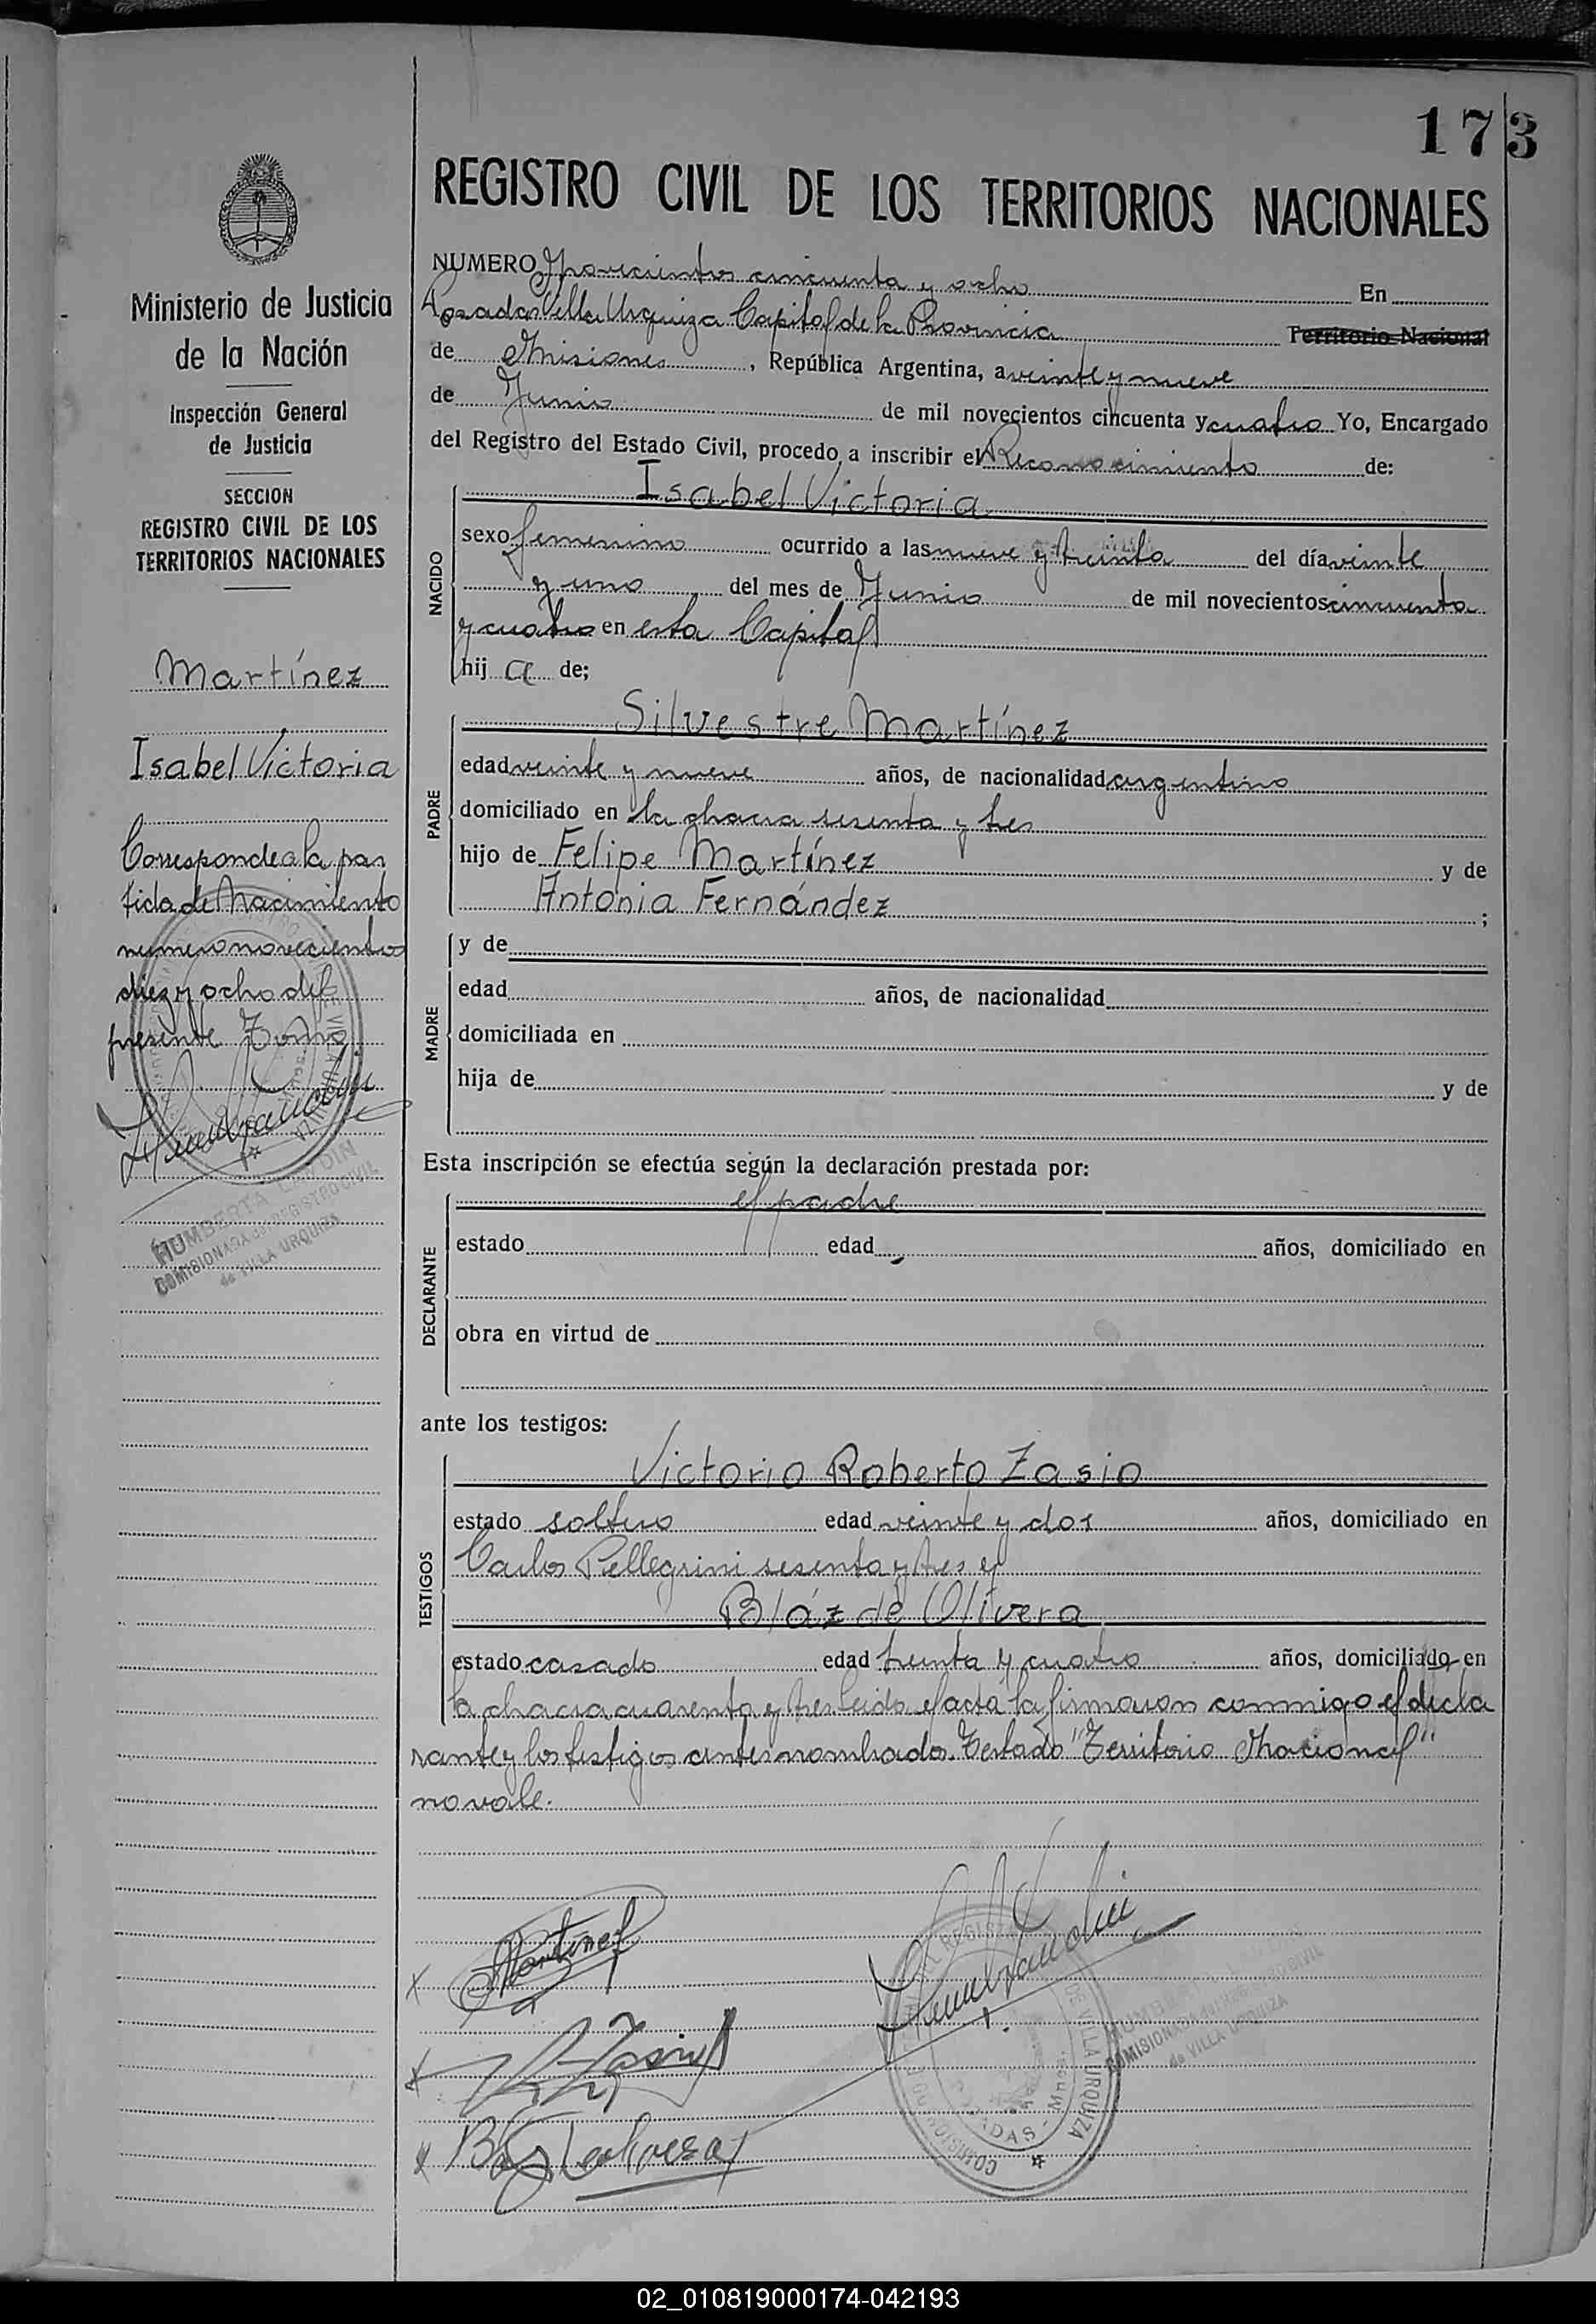 173
REGISTRO CIVIL DE LOS TERRITORIOS NACIONALES
NUMERO Novecientos cincuenta y ocho En
Posadas Villa Urquiza Capital de la Provincia Territorio Nacional
de Misiones, República Argentina, a veinte y nueve
de Junio de mil novecientos cincuenta y cuatro Yo, Encargado
del Registro del Estado Civil, procedo a inscribir el Reconocimiento de:
NACIDO
Isabel Victoria
sexo femenino ocurrido a las nueve y treinta del día veinte
y uno del mes de Junio de mil novecientos cincuenta
y cuatro en esta Capital
hij a de;
PADRE
Silvestre Martínez
edad veinte y nueve años, de nacionalidad argentino
domiciliado en la chacra sesenta y tres
hijo de Felipe Martínez y de
Antonia Fernández ;
MADRE
y de
edad años, de nacionalidad
domiciliada en
hija de y de
Esta inscripción se efectúa según la declaración prestada por:
DECLARANTE
el padre
estado edad años, domiciliado en
obra en virtud de
ante los testigos:
TESTIGOS
Victorio Roberto Zasio
estado soltero edad veinte y dos años, domiciliado en
Carlos Pellegrini sesenta y tres y
Bláz de Olivera
estado casado edad treinta y cuatro años, domiciliado en
la chacra cuarenta y tres. Leida el acta la firmaron conmigo el decla
rante y los testigos antes nombrados. Testado "Territorio Nacional"
no vale.
Martinez
Zasio
COMISIONADA de REGISTRO CIVIL
de VILLA URQUIZA
Ministerio de Justicia
de la Nación
Inspección General
de Justicia
SECCION
REGISTRO CIVIL DE LOS
TERRITORIOS NACIONALES
Martínez
Isabel Victoria
Corresponde a la par
tida de Nacimiento
numero novecientos
diez y ocho del
presente Tomo.
HUMBERTA
COMISIONADA de REGISTRO CIVIL
de VILLA URQUIZA
02_010819000174-042193